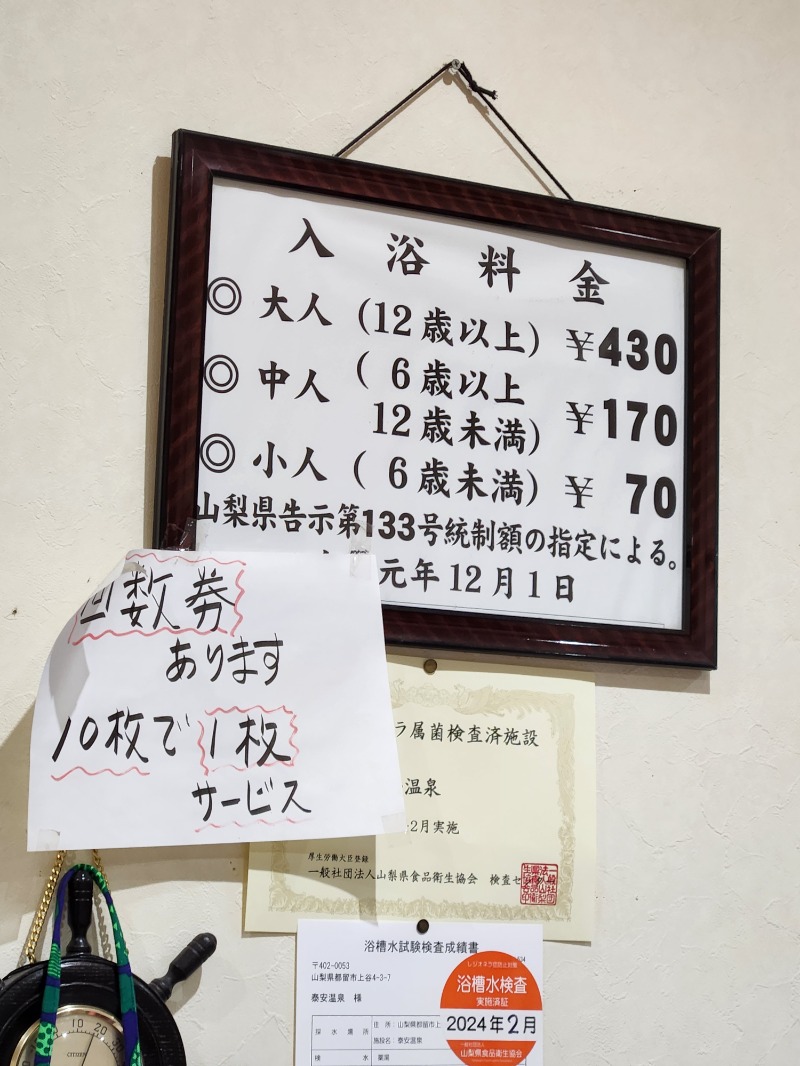 入浴料金
◎大人(12歳以上) ¥430
◎中人(6歳以上
12歳未満) ¥170
◎小人(6歳未満) ¥70
山梨県告示第133号統制額の指定による。
元年12月1日
回数券
あります
10枚で1枚
サービス
ラ属菌検査済施設
温泉
2月実施
厚生労働大臣登録
一般社団法人山梨県食品衛生協会 検査セ
浴槽水試験検査成績書
〒402-0053
山梨県都留市上谷4-3-7
泰安温泉 様
採水場所
住所:山梨県都留市上
施設名:泰安温泉
検水 薬湯
レジオネラ症防止対策
浴槽水検査
実施済証
2024年2月
一般社団法人
山梨県食品衛生協会
10 20 30
CITIZEN